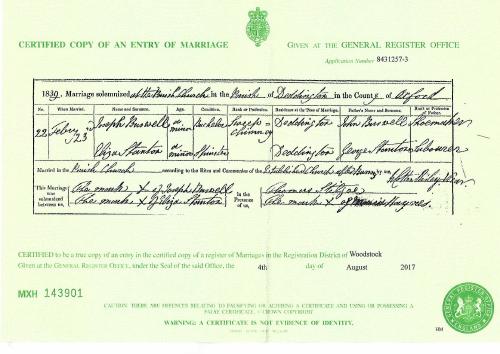 CERTIFIED COPY OF AN ENTRY OF MARRIAGE
GIVEN AT THE GENERAL REGISTER OFFICE
Application Number 8431257-3
1839. Marriage solemnized at the Parish Church in the Parish of Deddington in the County of Oxford
No. When Married. Name and Surname. Age. Condition. Rank or Profession. Residence at the Time of Marriage. Father's Name and Surname. Rank or Profession of Father.
22 Febry 23 Joseph Buswell a minor Bachelor Deddington John Buswell Shoemaker
Eliza Stanton a minor Spinster Deddington George Stanton Labourer
Married in the Parish Church according to the Rites and Ceremonies of the Established Church by me,
This Marriage was solemnized between us, The mark X of Joseph Buswell In the Presence of us, Thomas
The mark X of Eliza Stanton The mark X of
CERTIFIED to be a true copy of an entry in the certified copy of a register of Marriages in the Registration District of Woodstock
Given at the GENERAL REGISTER OFFICE, under the Seal of the said Office, the 4th day of August 2017
MXH 143901
CAUTION: THERE ARE OFFENCES RELATING TO FALSIFYING OR ALTERING A CERTIFICATE AND USING OR POSSESSING A
FALSE CERTIFICATE. © CROWN COPYRIGHT
WARNING: A CERTIFICATE IS NOT EVIDENCE OF IDENTITY.
GENERAL REGISTER OFFICE
ENGLAND